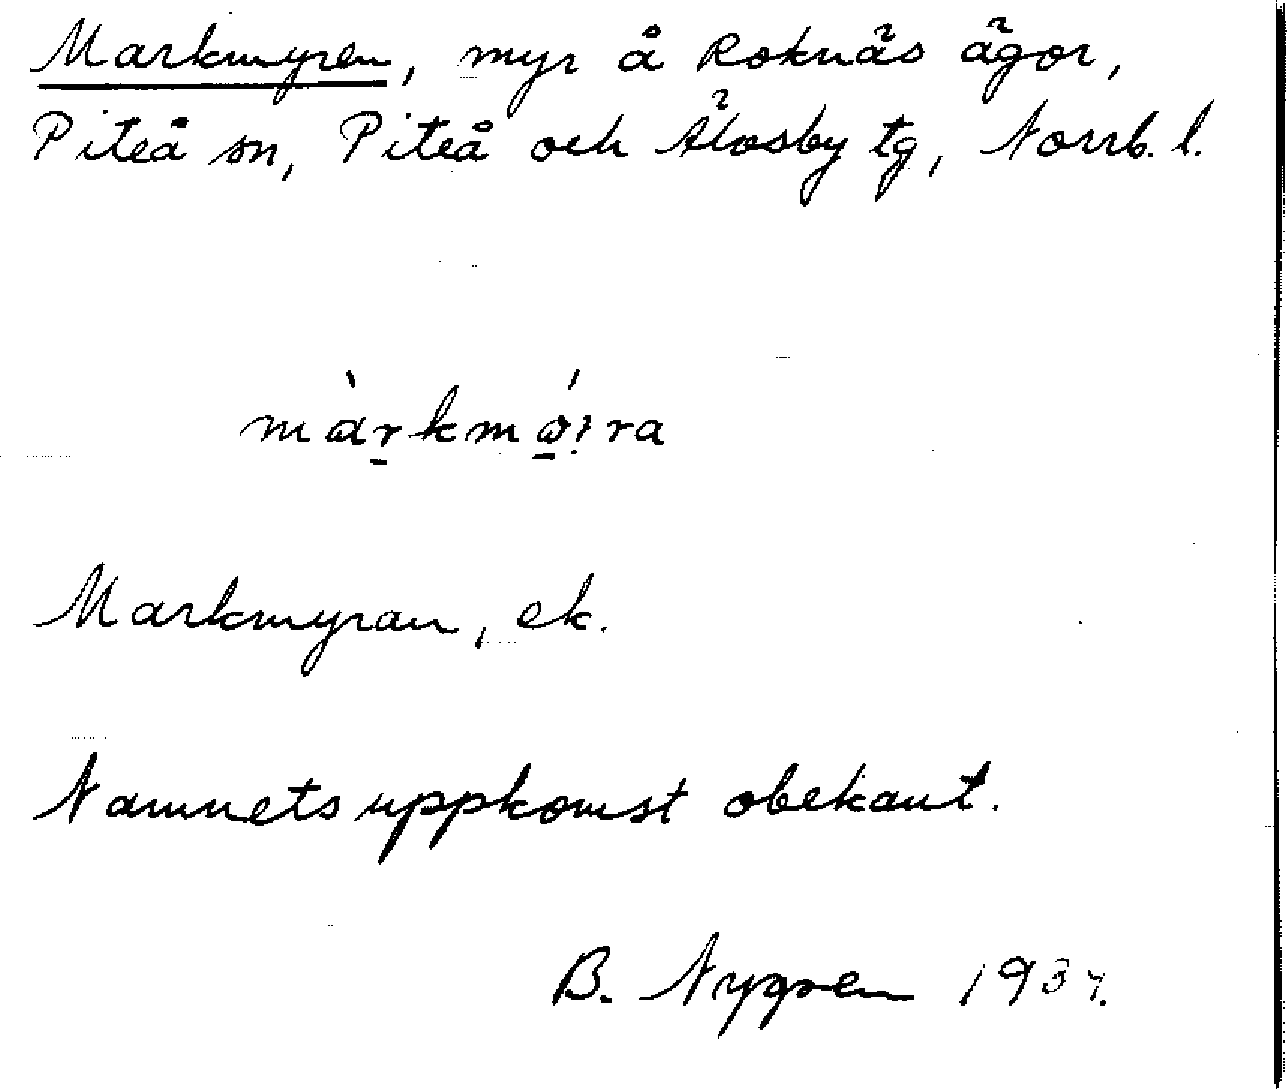 Markmyren, myr å Roknäs ägor,
Piteå sn, Piteå och Älvsby tg, Norrb. l.
màrkmǿira
Markmyran, ek.
Namnets uppkomst obekant.
B. Nygren 1937.